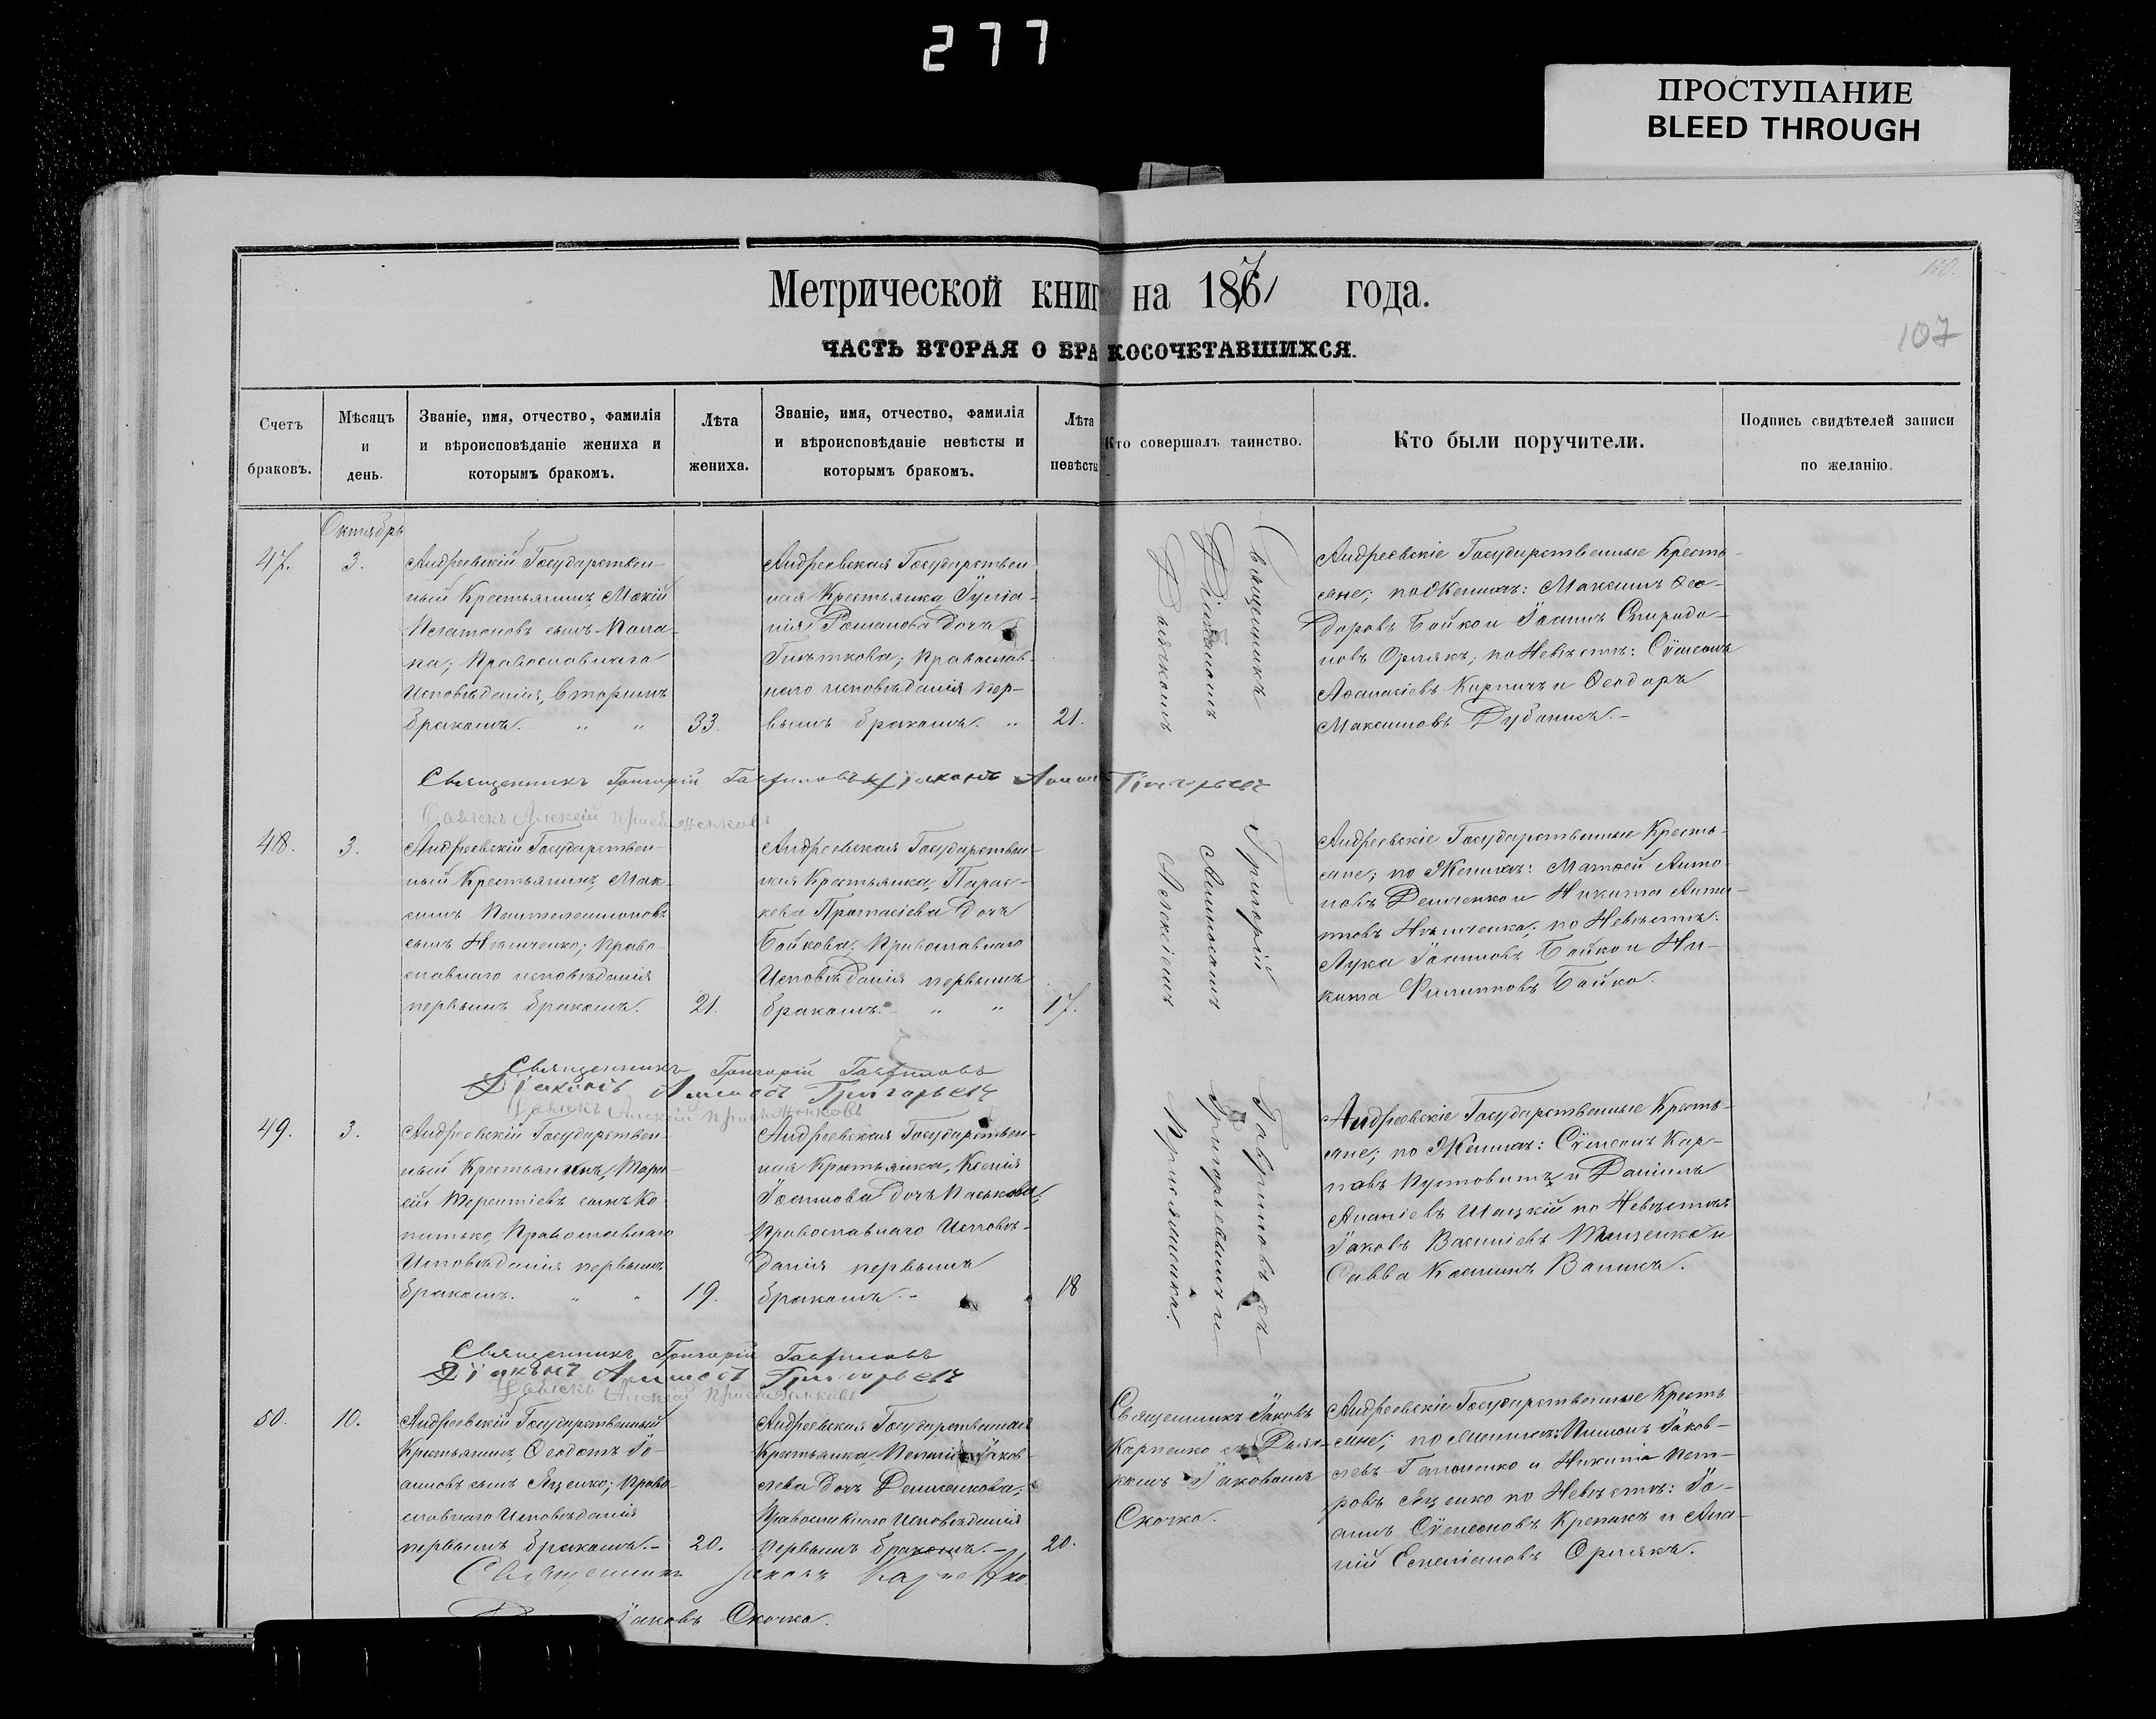 277
ПРОСТУПАНИЕ
BLEED THROUGH
Метрической книг на 1871 года.
110.
107
ЧАСТЬ ВТОРАЯ О БРАКОСОЧЕТАВШИХСЯ.
Счетъ браковъ.
Мѣсяцъ и день.
Званіе, имя, отчество, фамилія и вѣроисповѣданіе жениха и которымъ бракомъ.
Лѣта жениха.
Званіе, имя, отчество, фамилія и вѣроисповѣданіе невѣсты и которымъ бракомъ.
Лѣта невѣсты
Кто совершалъ таинство.
Кто были поручители.
Подпись свидѣтелей записи по желанію.
Октябрь
47.
3.
Андреевскій Государствен-
ный Крестьянинъ, Мокій
Платоновъ сынъ
на; Православнаго
Исповѣданія, вторымъ
бракомъ. " "
33.
Андреевская Государствен-
ная Крестьянка Іулiа-
нія Романова дочь
православ-
наго исповѣданія пер-
вымъ бракомъ. "
21.
Андреевскіе Государственные Кресть-
яне; по Женихѣ: Максимъ Ѳео-
доровъ Бойко и Іоаннъ Спиридо-
новъ Орлякъ; по Невѣстѣ: Сѵмеонъ
Аѳанасіевъ Кирпичъ и Ѳеодоръ
Максимовъ
Священникъ Григорій Гавриловъ Діаконъ Григорьевъ
Дьячекъ Алексій
48.
3.
Андреевскій Государствен-
ный Крестьянинъ, Мак-
симъ Пантелеимоновъ
сынъ Ильченко; Право-
славнаго исповѣданія
первымъ бракомъ.
21.
Андреевская Государствен-
ная Крестьянка, Парас-
кева Протасіева дочь
Бойкова, Православнаго
Исповѣданія первымъ
бракомъ. " "
17.
Андреевскіе Государственные Кресть-
яне; по Женихѣ: Матѳей Анто-
новъ Демченко и Никита Анти-
повъ Ильченко; по Невѣстѣ:
Лука Іоанновъ Бойко и Ни-
кита Филипповъ Бойко.
Священникъ Григорій Гавриловъ
Діаконъ Григорьевъ
Дьячекъ Алексій
49.
3.
Андреевскій Государствен-
ный Крестьянинъ,
Терентіевъ сынъ Ко-
питько, Православнаго
Исповѣданія первымъ
бракомъ. " "
19.
Андреевская Государствен-
ная Крестьянка, Ксенія
Іоаннова дочь Паськова;
Православнаго Исповѣ-
данія первымъ
бракомъ. -
18
Андреевскіе Государственные Кресть-
яне; по Женихѣ: Сѵмеонъ Кар-
повъ Пустовитъ и Даніилъ
Ананіевъ по Невѣстѣ
Іаковъ Васильевъ и
Савва
Священникъ Григорій Гавриловъ
Діаконъ Григорьевъ
Дьячекъ Алексій
Священникъ Григорій Гавриловъ съ
Діакономъ Григорьевымъ и
Дьячкомъ Алексіемъ
50.
10.
Андреевскій Государственный
Крестьянинъ, Ѳеодотъ Іо-
анновъ сынъ Яценко; Право-
славнаго Исповѣданія
первымъ бракомъ. -
20.
Андреевская Государственная
Крестьянка, Іаков-
лева дочь Демченкова;
Православнаго Исповѣданія
первымъ бракомъ. -
20.
Священникъ Іаковъ
Карпенко съ Дьяч-
комъ Іаковомъ
Скочко.
Андреевскіе Государственные Кресть-
яне; по Женихѣ: Іаков-
левъ и Никита Пет-
ровъ Яценко по Невѣстѣ: Іо-
аннъ Сѵмеоновъ и Ана-
ній Орлякъ.
Священникъ Іаковъ Карпенко
Іаковъ Скочко.